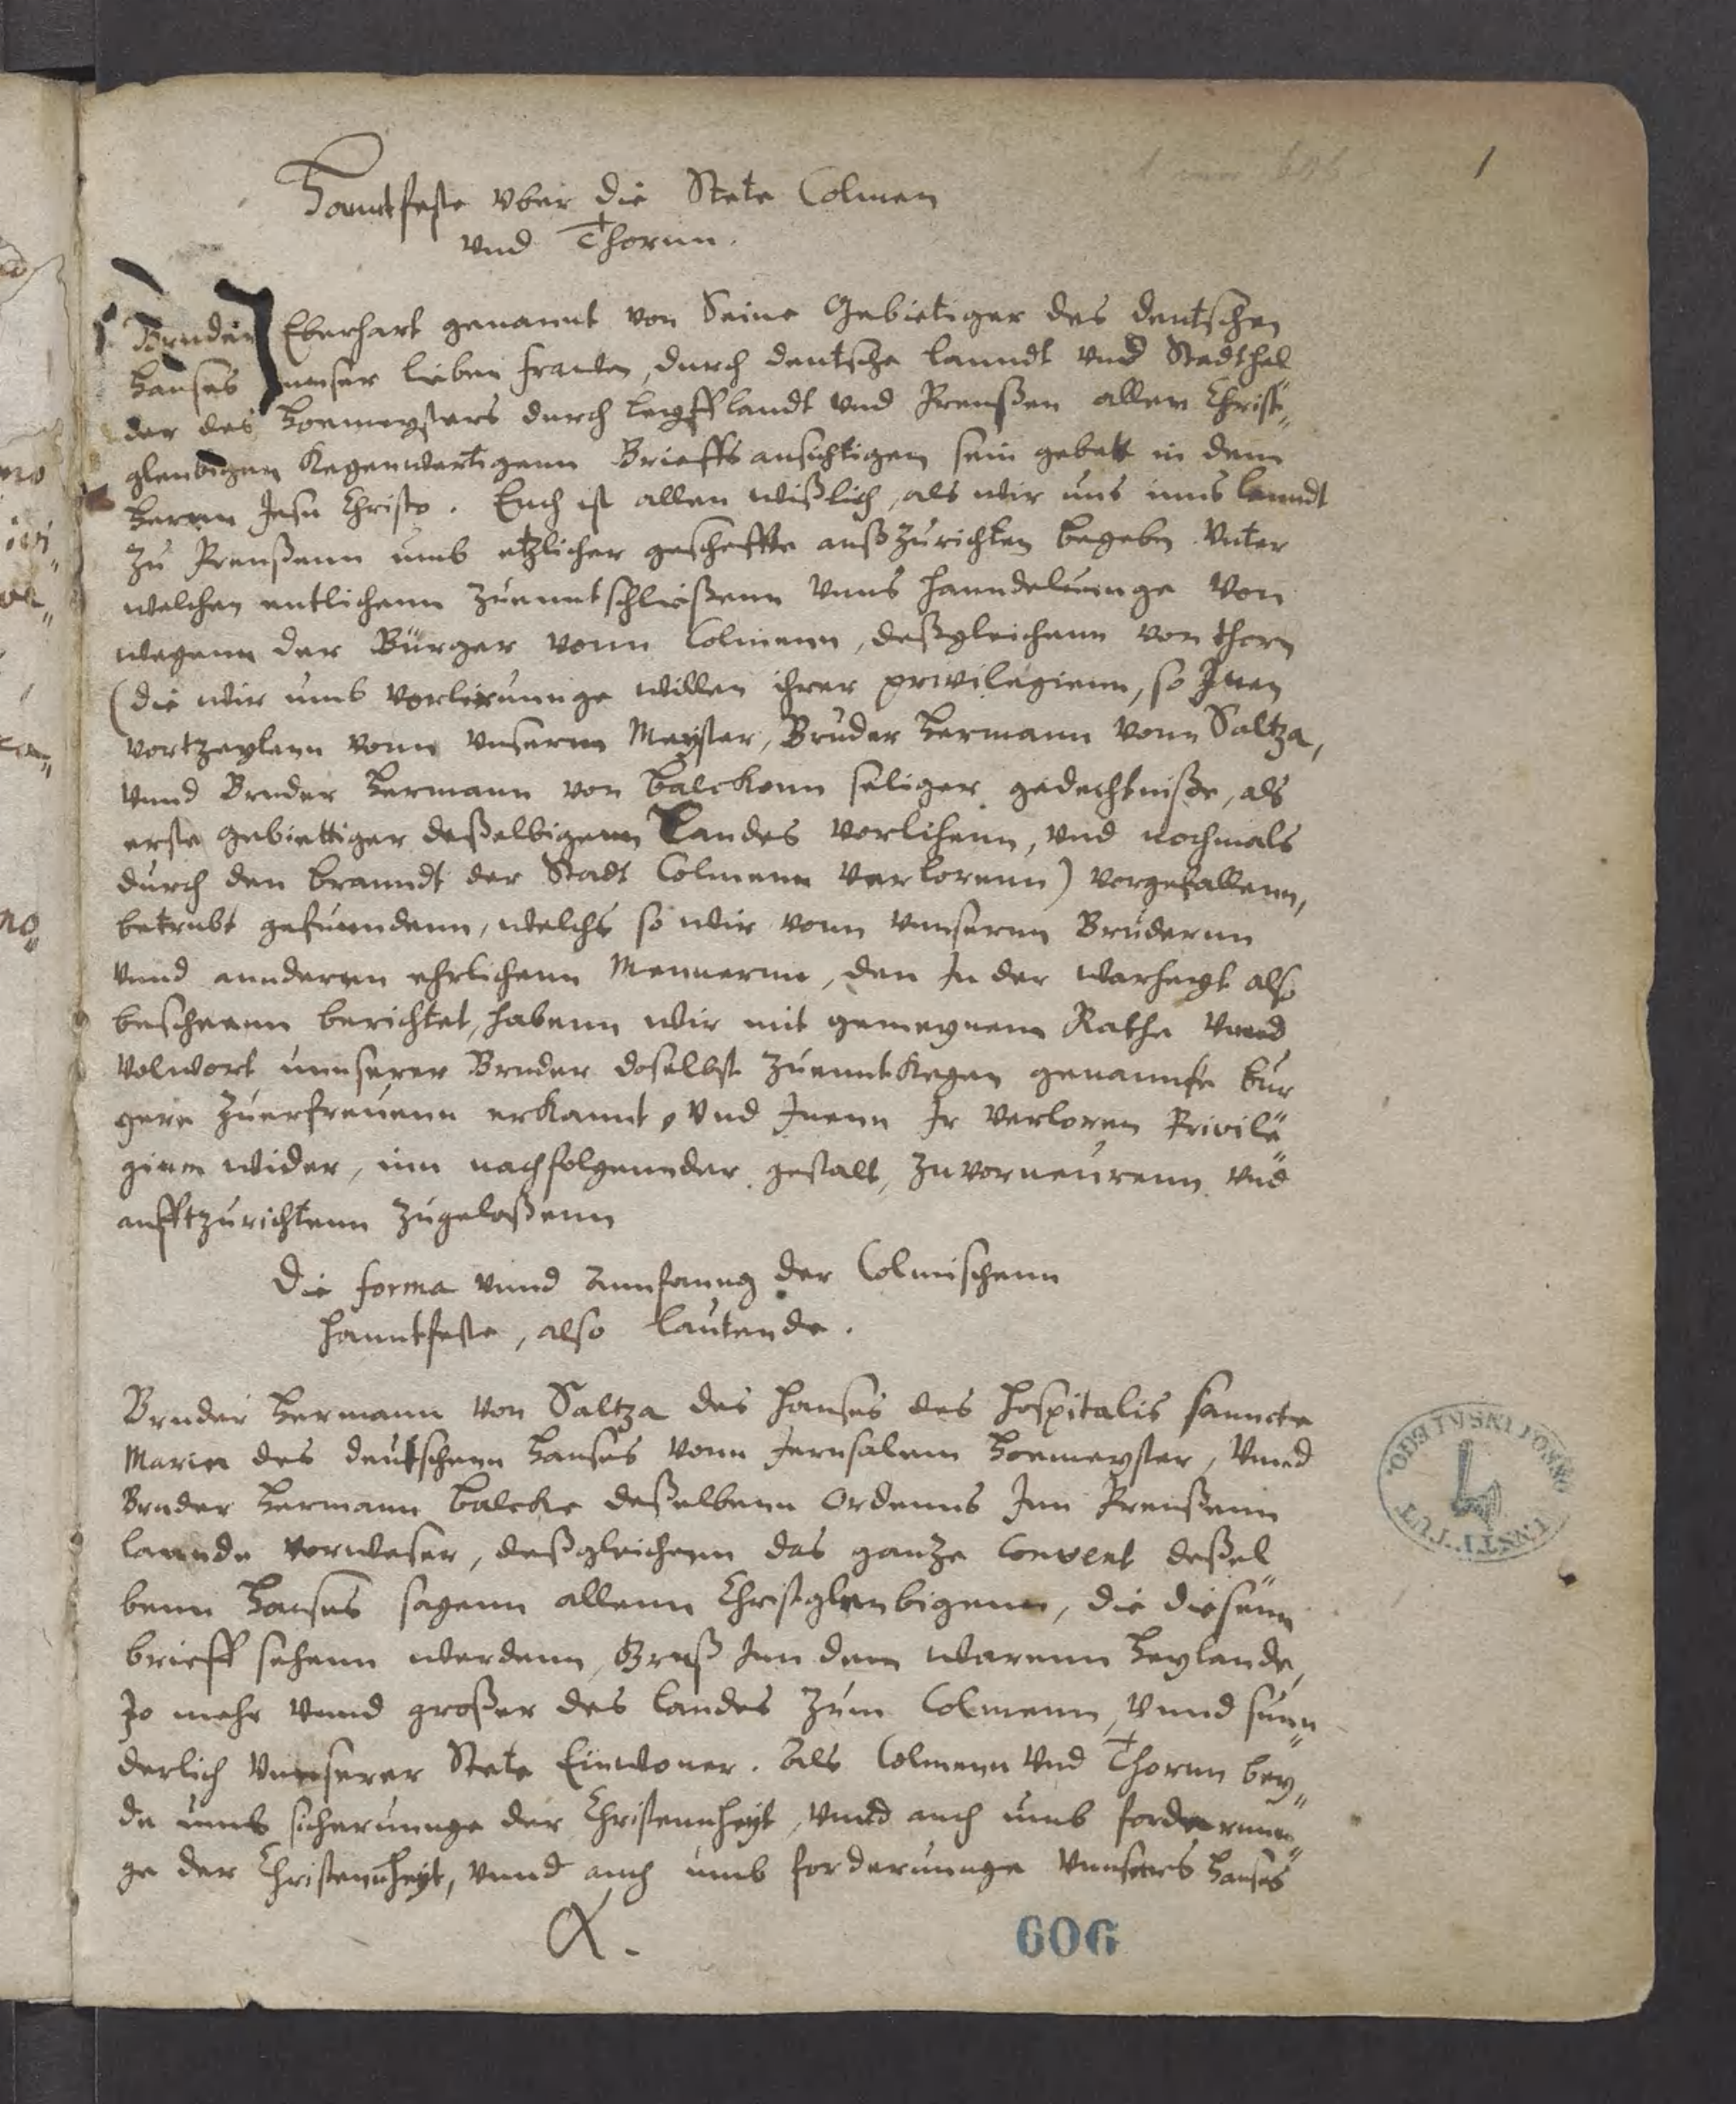 1
Hanntfeste vber die Stete Colmen
vnd Thornn.
Bruder Eberhart genannt von Seine Gebietiger des deutschen
Hauses unser lieben frauen, durch deutsche lanndt vnd Stadthel
der des Homeysters durch Leyfflandt vnd Preußen allen Christ„
gleubigen kegenwertigenn Brieffs ansichtigen sein gebett in dem
Hernn Jesu Christo. Euch ist allen wißlich, als wir uns inns lanndt
zu Preußenn umb etzlicher gescheffte außzurichten begeben vnter
welchen entlichenn zuenntschließenn vnns hanndelunge von
wegenn der Bürger vonn Colmenn, deßgleichenn von thorn
(die wir umb vorlierunnge willen ihrer privilegienn, so Jnen
vortzeylenn vonn vnsernn Meyster, Bruder Hermann vonn Saltza,
vnnd Bruder Hermann von Balckenn seliger gedechtniße, als
erste gebiettiger deßelbigenn Landes vorlihenn, vnd nochmals
durch den branndt der Stadt Colmenn verlorenn) vorgefallenn,
betrubt gefunndenn, welchs so wir vonn vnnsernn Brüdernn
vnnd annderenn ehrlichenn Mennernn, den Jn der warheyt also
bescheenn berichtet, habenn wir mit gemeynem Rathe vnnd
volwort unnserer Bruder doselbst zuenntkegen genannte bur
gere zuerfreuenn erkannt, vnd Jnenn Jr verloren Privile„
gienn wider, inn nachfolgennder gestalt, zuvorneurenn vnd
aufftzurichtenn zugelaßenn
Die forma vnnd Annfanng der Colmischenn
hanntfeste, also lautende.
Bruder Hermann von Saltza des hauses des hospitalis sanncte
Marien des deutschenn Hauses vonn Jerusalem Homeyster, vnnd
Bruder Hermann Balcke deßelbenn Ordenns Jnn Preußenn
lannde vorweser, deßgleichenn das ganze Convent deßel„
benn Hauses sagenn allenn Christgleubigenn, die diesenn
brieff sehenn werdenn, Gruß Jnn dem warenn Heylande,
Jo mehr vnnd großer des landes zum Colmenn, vnnd sunn„
derlich vnnserer Stete Einwoner. Als Colmenn vnd Thornn bey„
de umb sicherunnge der Christennheyt, vnnd auch umb forderunn„
ge der Christennheyt, vnnd auch umb forderunnge vnnsers Hauses
A.
606
INSTITUT